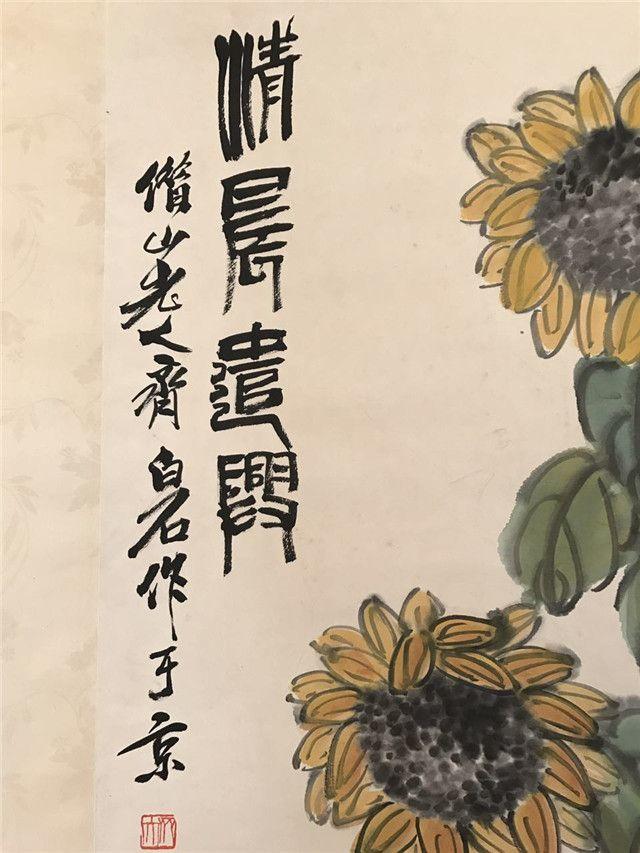 清晨遣興
借山老人齊白石作于京